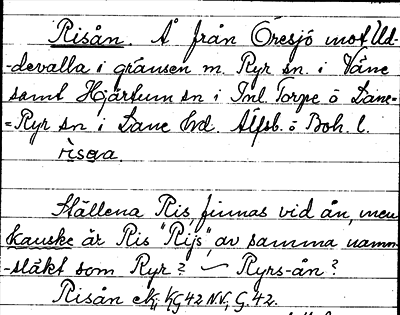 Risån. Å från Öresjö mot Ud-
-devalla i gränsen m. Ryr sn. i Väne
samt Hjärtum sn i Inl. Torpe ö Lane-
=Ryr sn i Lane hd. Älfsb. ö Boh. l.
risəa.
Ställena Ris finnas vid ån, men
kanske är Ris "Rijs", av samma namn-
-släkt som Ryr? Ryrs-ån?
Risån ek, KG 42 NV, G. 42.